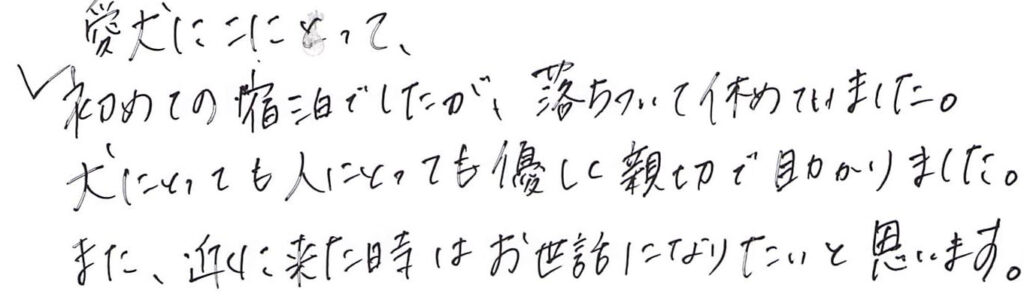 愛犬にこにとって、
初めての宿泊でしたが、落ちついて休めていました。
犬にとっても人にとっても優しく親切で助かりました。
また、近くに来た時はお世話になりたいと思います。